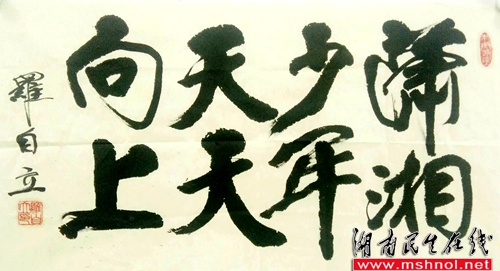 潇湘
少年
天天
向上
羅自立
湖南民生在线
www.mshnol.net